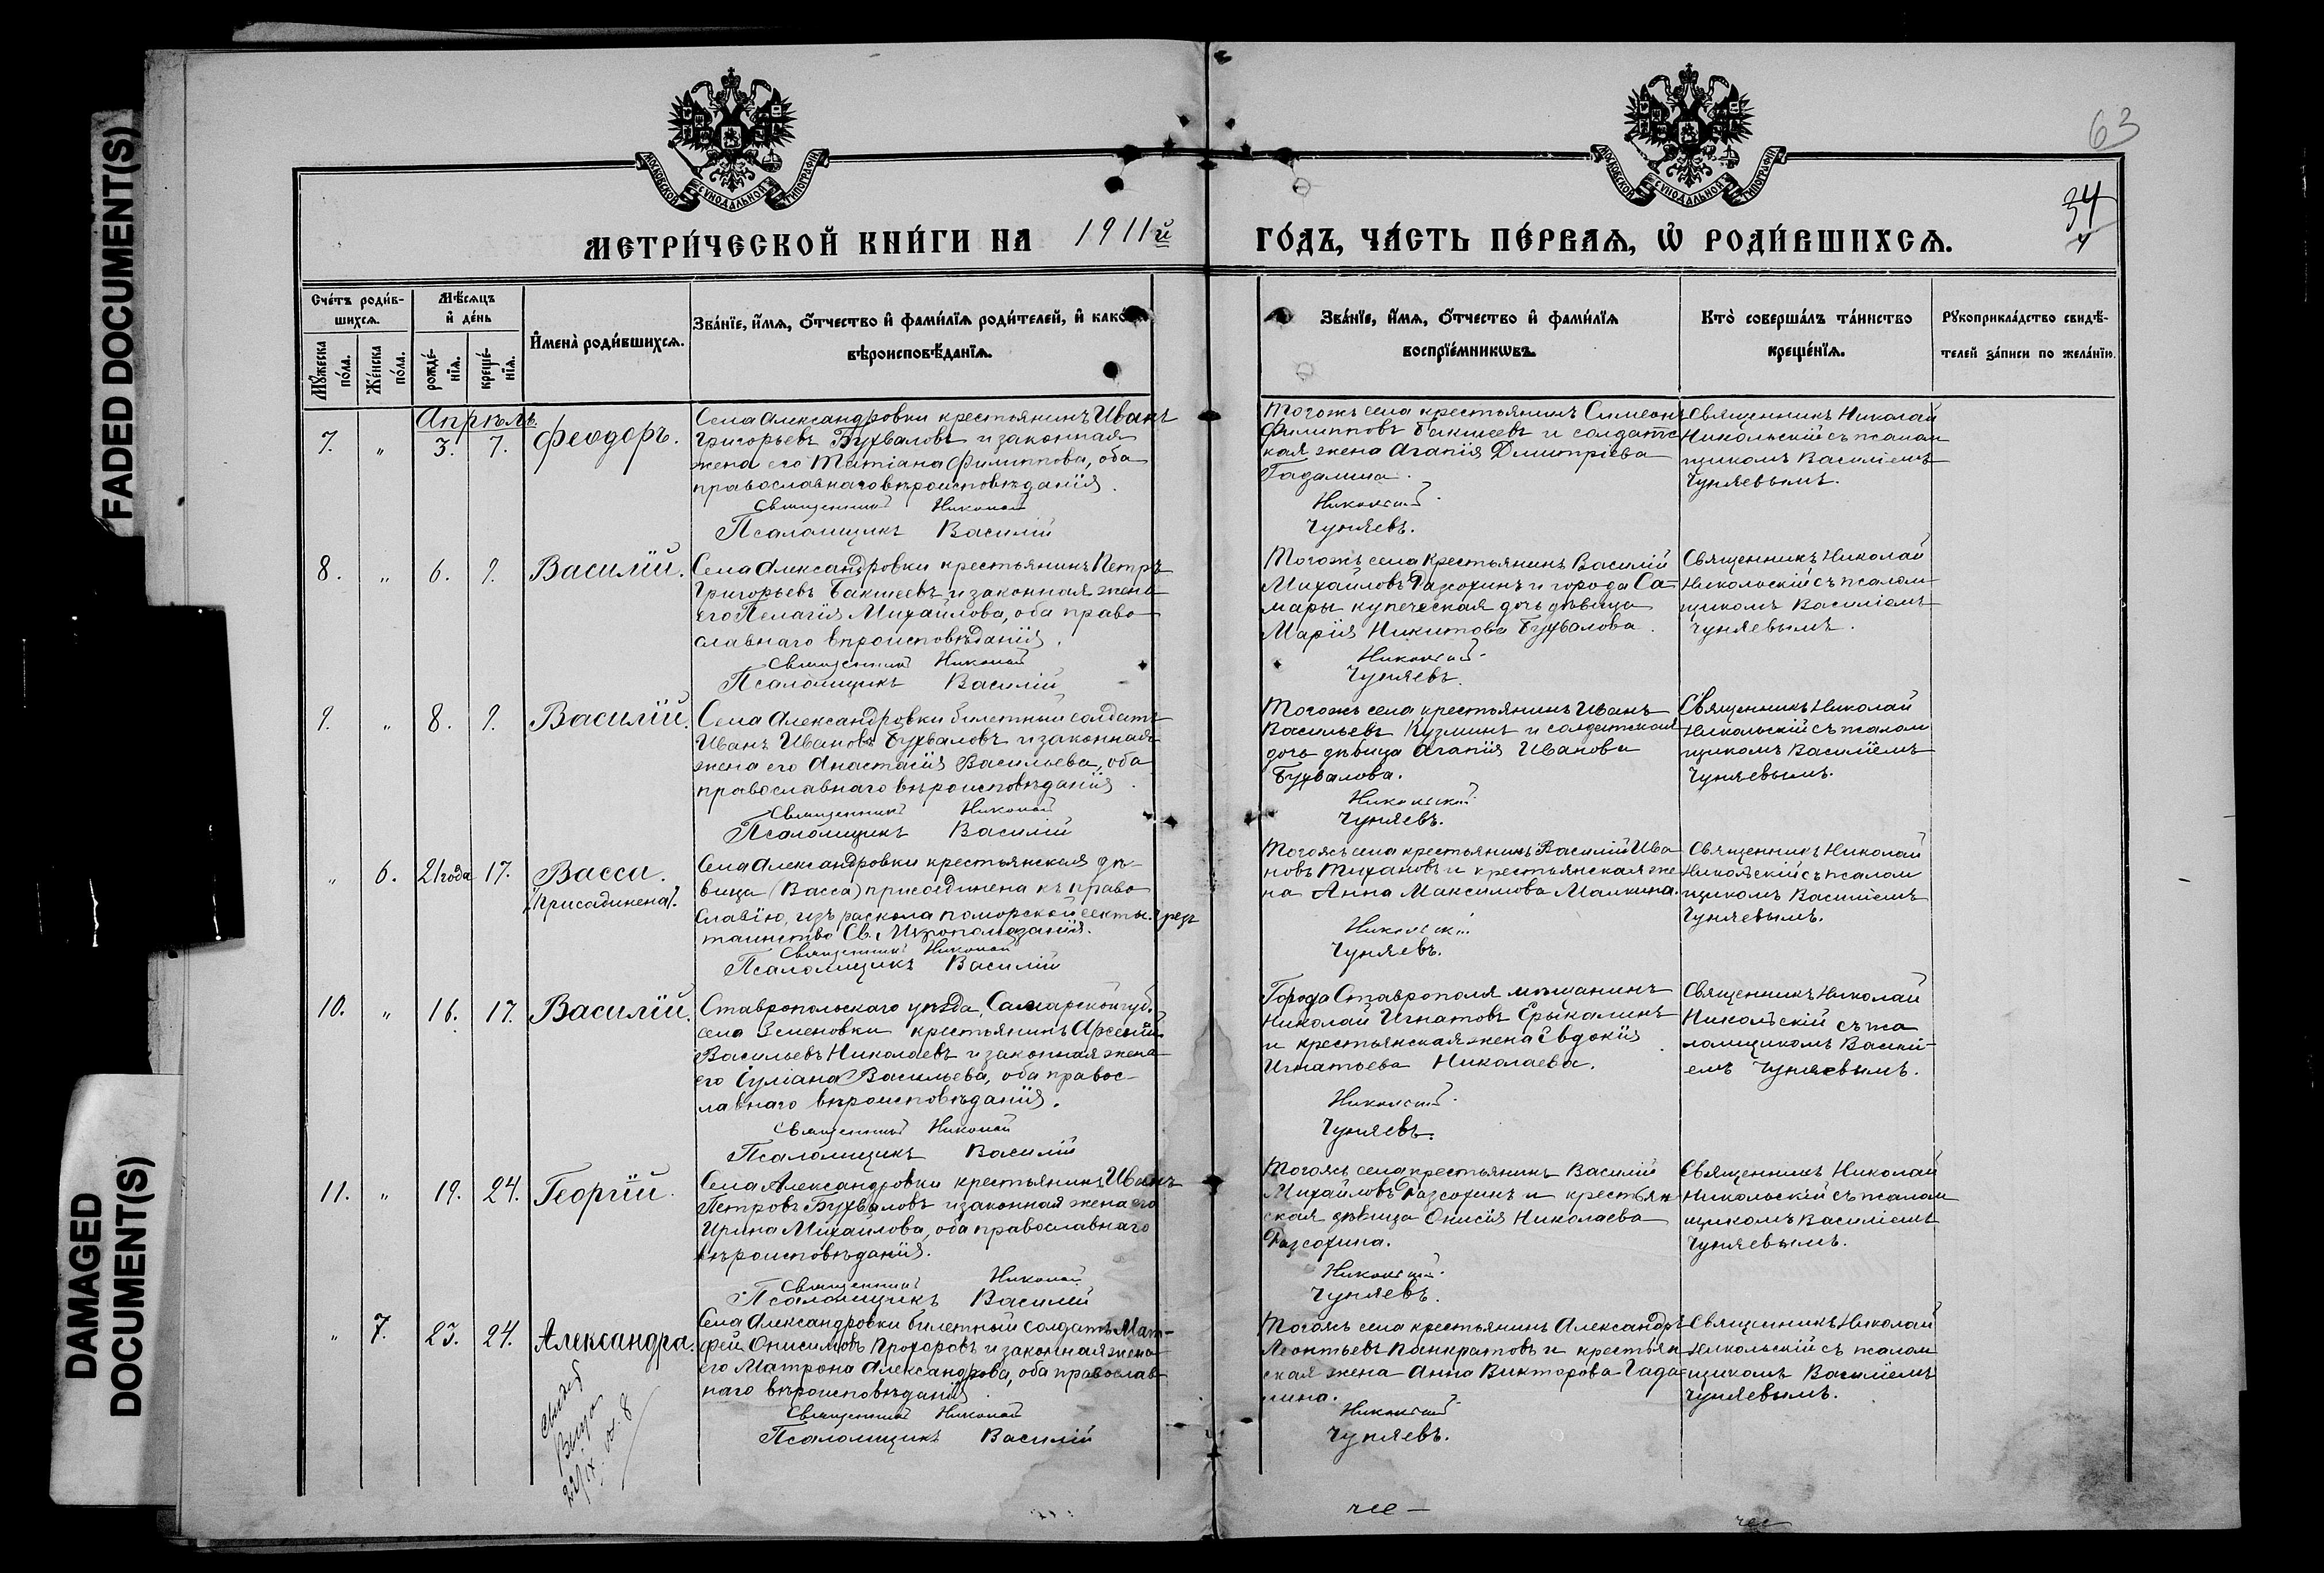 FADED DOCUMENT(S)
DAMAGED
DOCUMENT(S)
63
34
МОСКОВСКОЙ СѴНОДАЛЬНОЙ ТИПОГРАФІИ
МОСКОВСКОЙ СѴНОДАЛЬНОЙ ТИПОГРАФІИ
МЕТРИ́ЧЕСКОЙ КНИ́ГИ НА 1911й ГО́ДЪ, ЧА́СТЬ ПЕ́РВАЯ, Ѡ҆ РОДИ́ВШИХСЯ.
Сче́тъ роди́в-
шихся.
Мѣ́сяцъ
и҆ де́нь
Мꙋ́жеска по́ла.
Же́нска по́ла.
рожде́-
нїя.
креще́-
нїя.
И҆мена̀ роди́вшихся.
Зва́нїе, и҆́мя, ѻ҆́тчество и҆ фами́лїя роди́телей, и҆ како́гѡ
вѣроисповѣ́данїя.
Зва́нїе, и҆́мя, ѻ҆́тчество и҆ фами́лїя
воспрїе́мникѡвъ.
Кто̀ соверша́лъ та́инство
креще́нїя.
Рꙋкоприкла́дство свидѣ́-
телей за́писи по жела́нїю.
Апрѣль.
7. " 3. 7. Ѳеодоръ.
Села Александровки крестьянинъ Иванъ
Григорьевъ Бухваловъ и законная
жена его Татіана Филиппова, оба
православнаго вѣроисповѣданія.
Священникъ Николай
Псаломщикъ Василій
Тогожъ села крестьянинъ Симеонъ
Филипповъ Бакшеевъ и солдатс
кая жена Агапія Димитріева
Гадалина.
Никольскій.
Чуняевъ.
Священникъ Николай
Никольскій съ псалом
щикомъ Василіемъ
Чуняевымъ.
8. " 6. 9. Василій.
Села Александровки крестьянинъ Петръ
Григорьевъ Бакшеевъ и законная жена
его Пелагія Михайлова, оба право
славнаго вѣроисповѣданія.
Священникъ Николай
Псаломщикъ Василій
Тогожъ села крестьянинъ Василій
Михайловъ Разсохинъ и города Са-
мары купеческая дочь дѣвица
Марія Никитова Бухвалова.
Никольскій.
Чуняевъ.
Священникъ Николай
Никольскій съ псалом
щикомъ Василіемъ
Чуняевымъ.
9. " 8. 9. Василій.
Села Александровки билетный солдатъ
Иванъ Ивановъ Бухваловъ и законная
жена его Анастасія Васильева, оба
православнаго вѣроисповѣданія.
Священникъ Николай
Псаломщикъ Василій
Тогожъ села крестьянинъ Иванъ
Васильевъ Кузминъ и солдатская
дочь дѣвица Агапія Иванова
Бухвалова.
Никольскій.
Чуняевъ.
Священникъ Николай
Никольскій съ псалом
щикомъ Василіемъ
Чуняевымъ.
" 6. 21 года 17. Васса.
(Присоединена).
Села Александровки крестьянская дѣ-
вица (Васса) присоединена къ право
славію, изъ раскола поморской секты. чрезъ
таинство Св. Мѵропомазанія.
Священникъ Николай
Псаломщикъ Василій
Тогожъ села крестьянинъ Василій Ива
новъ Тихановъ и крестьянская же
на Анна Максимова Малкина.
Никольскій
Чуняевъ.
Священникъ Николай
Никольскій съ псалом
щикомъ Василіемъ
Чуняевымъ.
10. " 16. 17. Василій.
Ставропольскаго уѣзда, Самарской губ.
села Зеленовки крестьянинъ Арсеній
Васильевъ Николаевъ и законная жена
его Іуліана Васильева, оба правос-
лавнаго вѣроисповѣданія.
Священникъ Николай
Псаломщикъ Василій
Города Ставрополя мѣщанинъ
Николай Игнатовъ Ерыкалинъ
и крестьянская жена Евдокія
Игнатьева Николаева.
Никольскій.
Чуняевъ.
Священникъ Николай
Никольскій съ пса
ломщикомъ Василі-
емъ Чуняевымъ.
11. " 19. 24. Георгій.
Села Александровки крестьянинъ Иванъ
Петровъ Бухваловъ и законная жена его
Ирина Михайлова, оба православнаго
вѣроисповѣданія.
Священникъ Николай
Псаломщикъ Василій
Тогожъ села крестьянинъ Василій
Михайловъ Разсохинъ и крестьян
ская дѣвица Онисія Николаева
Разсохина.
Никольскій.
Чуняевъ.
Священникъ Николай
Никольскій съ псалом
щикомъ Василіемъ
Чуняевымъ.
" 7. 23. 24. Александра.
Села Александровки билетный солдатъ Мат-
фей Онисимовъ Прохоровъ и законная жена
его Матрона Александрова, оба православ
наго вѣроисповѣданія.
Священникъ Николай
Псаломщикъ Василій
Тогожъ села крестьянинъ Александръ
Леонтьевъ Панкратовъ и крестьян
ская жена Анна Викторова Гада
лина.
Никольскій.
Чуняевъ.
Священникъ Николай
Никольскій съ псалом
щикомъ Василіемъ
Чуняевымъ.